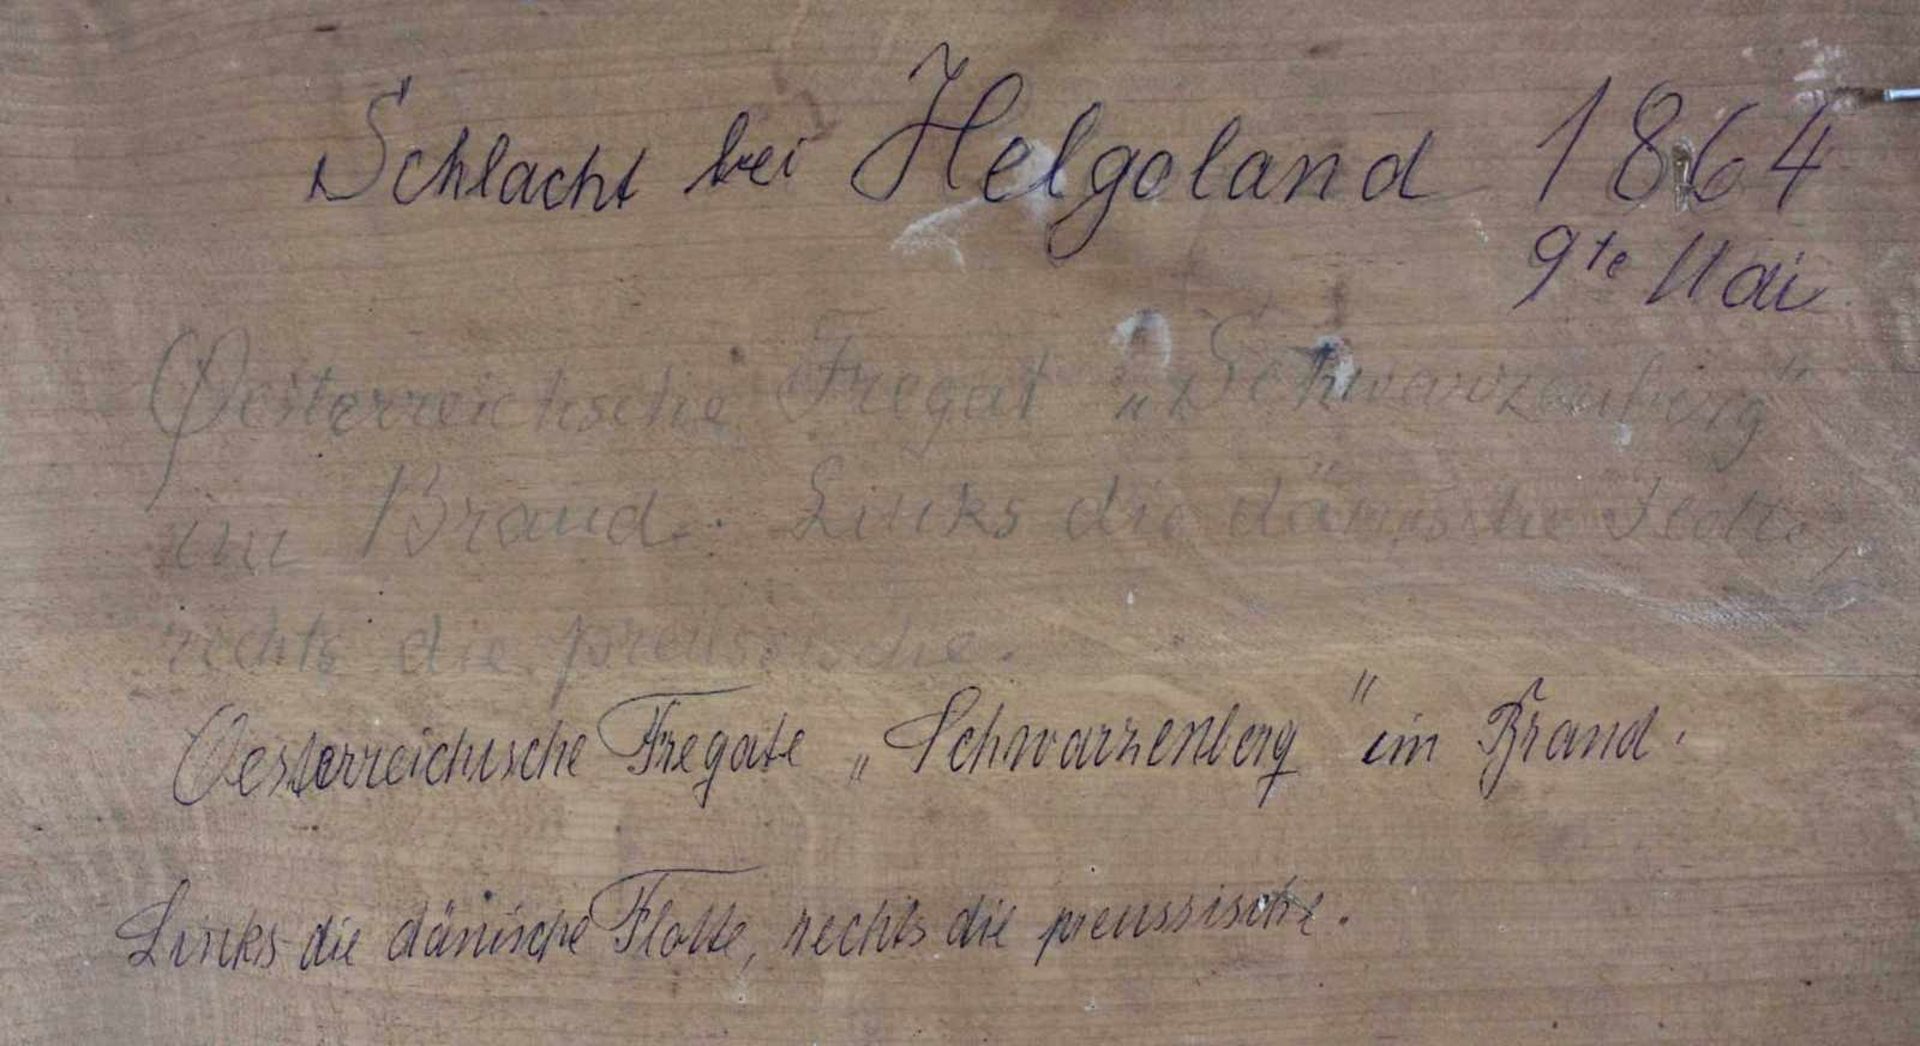 Schlacht bei Helgoland 1864
9te Mai
Oesterreichische Fregat „Schwarzenberg"
im Brand. Links die dänische Flotte,
rechts die preussische.
Oesterreichische Fregate „Schwarzenberg" im Brand.
Links die dänische Flotte, rechts die preussische.